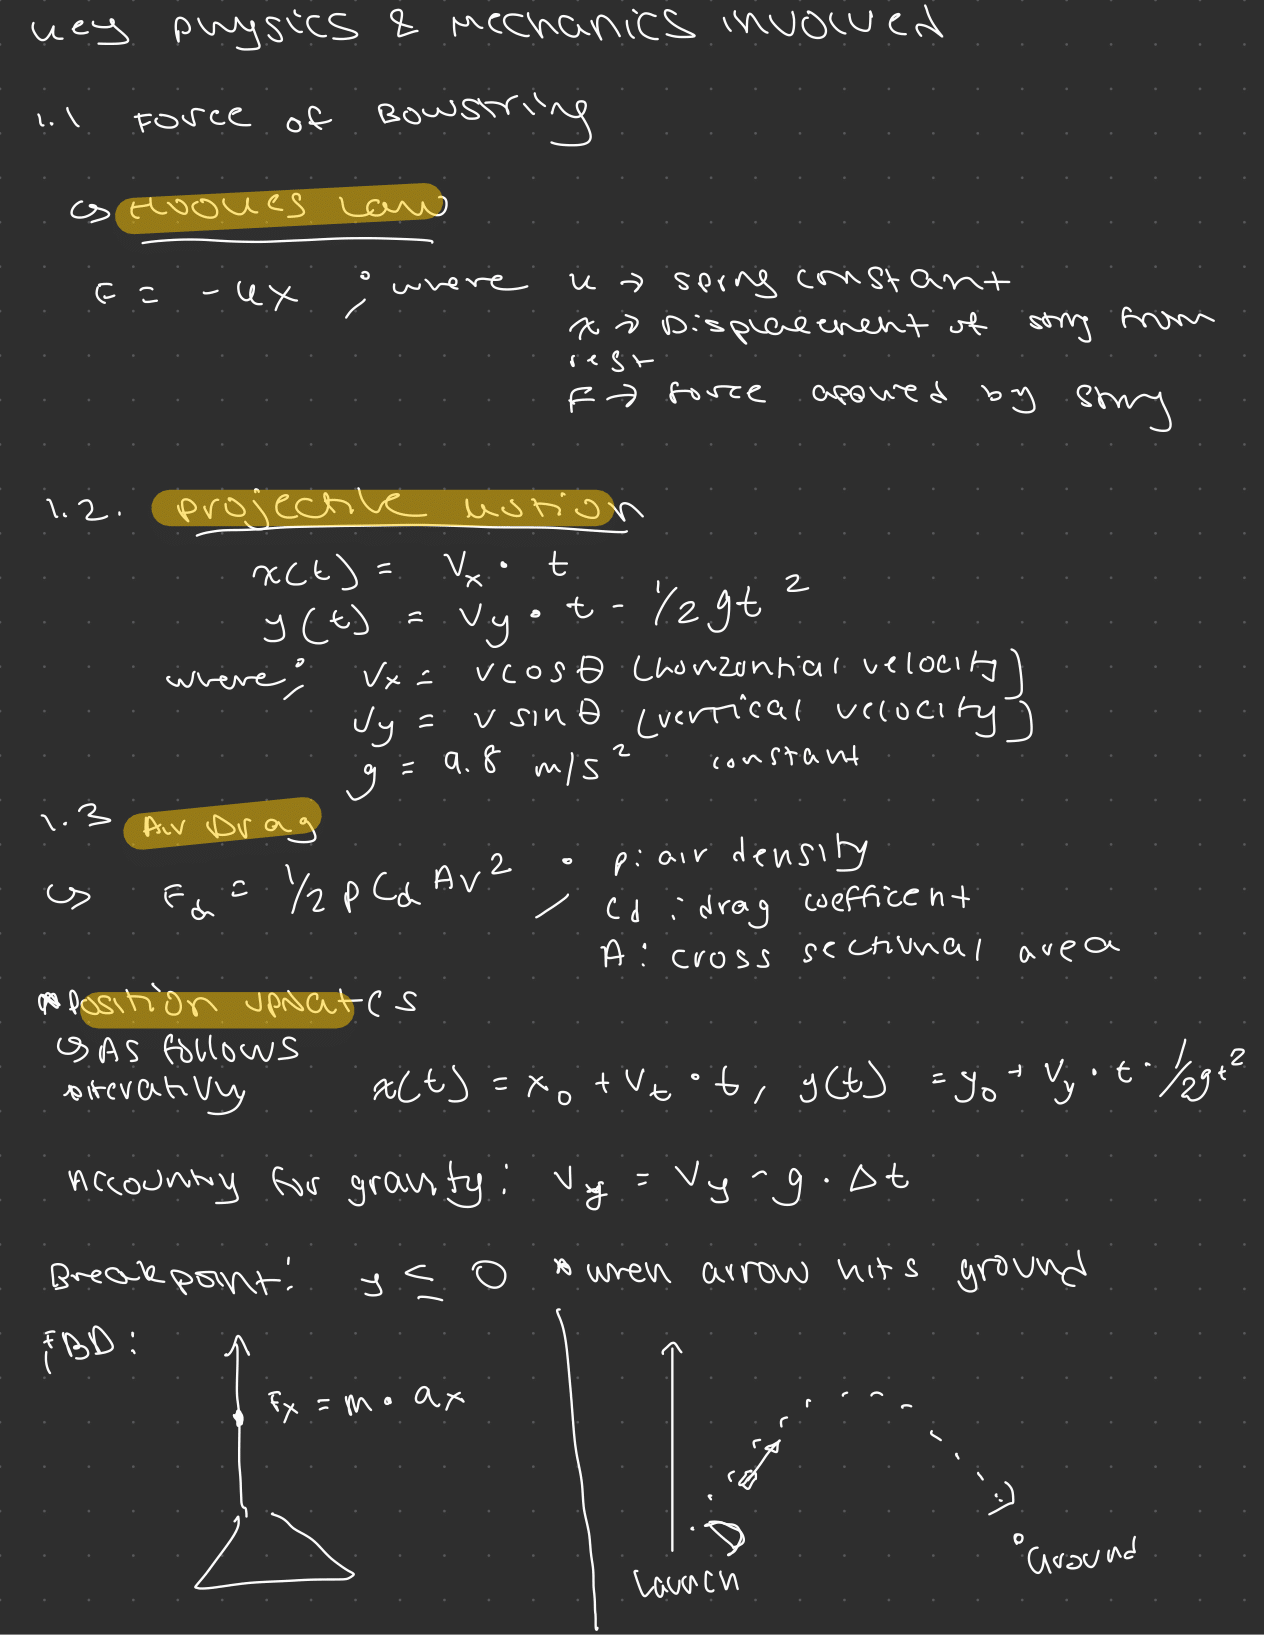 Key physics & Mechanics involved
1.1 Force of Bowstring
↪ Hookes Law
F = -kx ; where k → spring constant
x → Displacement of string from
rest
F → force applied by string
1.2. Projectile Motion
x(t) = Vx · t
y(t) = Vy · t - 1/2 gt²
where; Vx = v cos θ (horizontial velocity)
Vy = v sin θ (vertical velocity)
g = 9.8 m/s² constant
1.3 Air Drag
↪ Fd = 1/2 ρ Cd A v² ; ρ: air density
Cd : drag coefficent
A : cross sectional area
* Position updates
↪ As follows
iterativly x(t) = x₀ + Vt · t, y(t) = y₀ + Vy · t - 1/2gt²
Accounting for gravity: Vy = Vy - g · Δt
Breakpoint: y ≤ 0 * when arrow hits ground
FBD:
Fx = m · ax
Launch
Ground